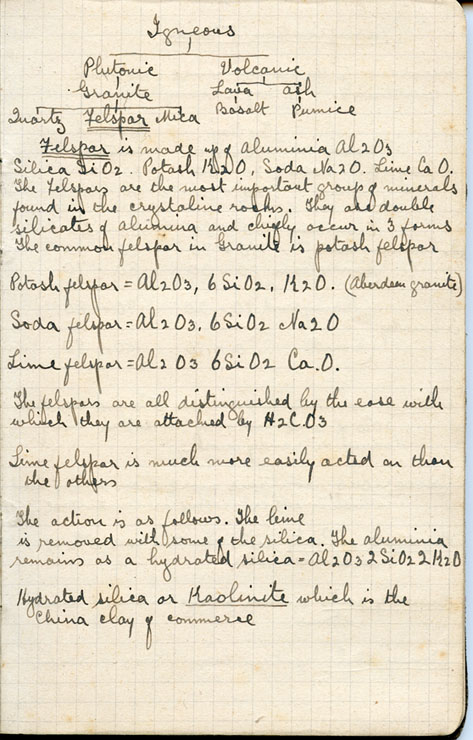 Igneous
Plutonic Volcanic
Granite Lava ash
Quartz Felspar Mica Basalt Pumice
Felspar is made up of Aluminia Al2O3
Silica SiO2. Potash K2O, Soda Na2O. Lime CaO.
The felspars are the most important group of minerals
found in the crystaline rocks. They are double
silicates of alumina and chiefly occur in 3 forms
The common felspar in Granite is potash felspar
Potash felspar = Al2O3, 6SiO2, K2O. (Aberdeen granite)
Soda felspar = Al2O3. 6SiO2 Na2O
Lime felspar = Al2O3 6SiO2 Ca.O.
The felspars are all distinguished by the ease with
which they are attacked by H2CO3
Lime felspar is much more easily acted on than
the others
The action is as follows. The lime
is removed with some of the silica. The aluminia
remains as a hydrated silica = Al2O3 2SiO2 2H2O
Hydrated silica or Kaolinite which is the
China clay of commerce